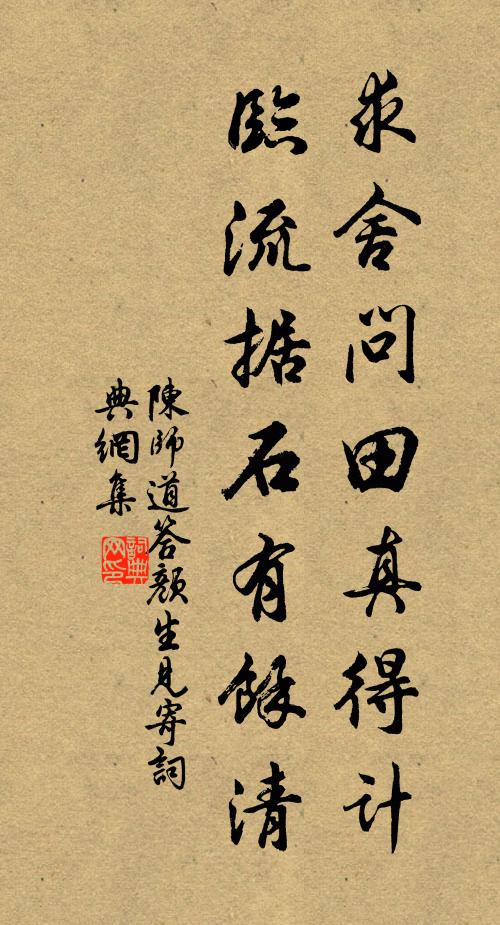 求舍問田真得计
臨流据石有餘清
陳師道答顏生見寄詞
典網集
詞典网印